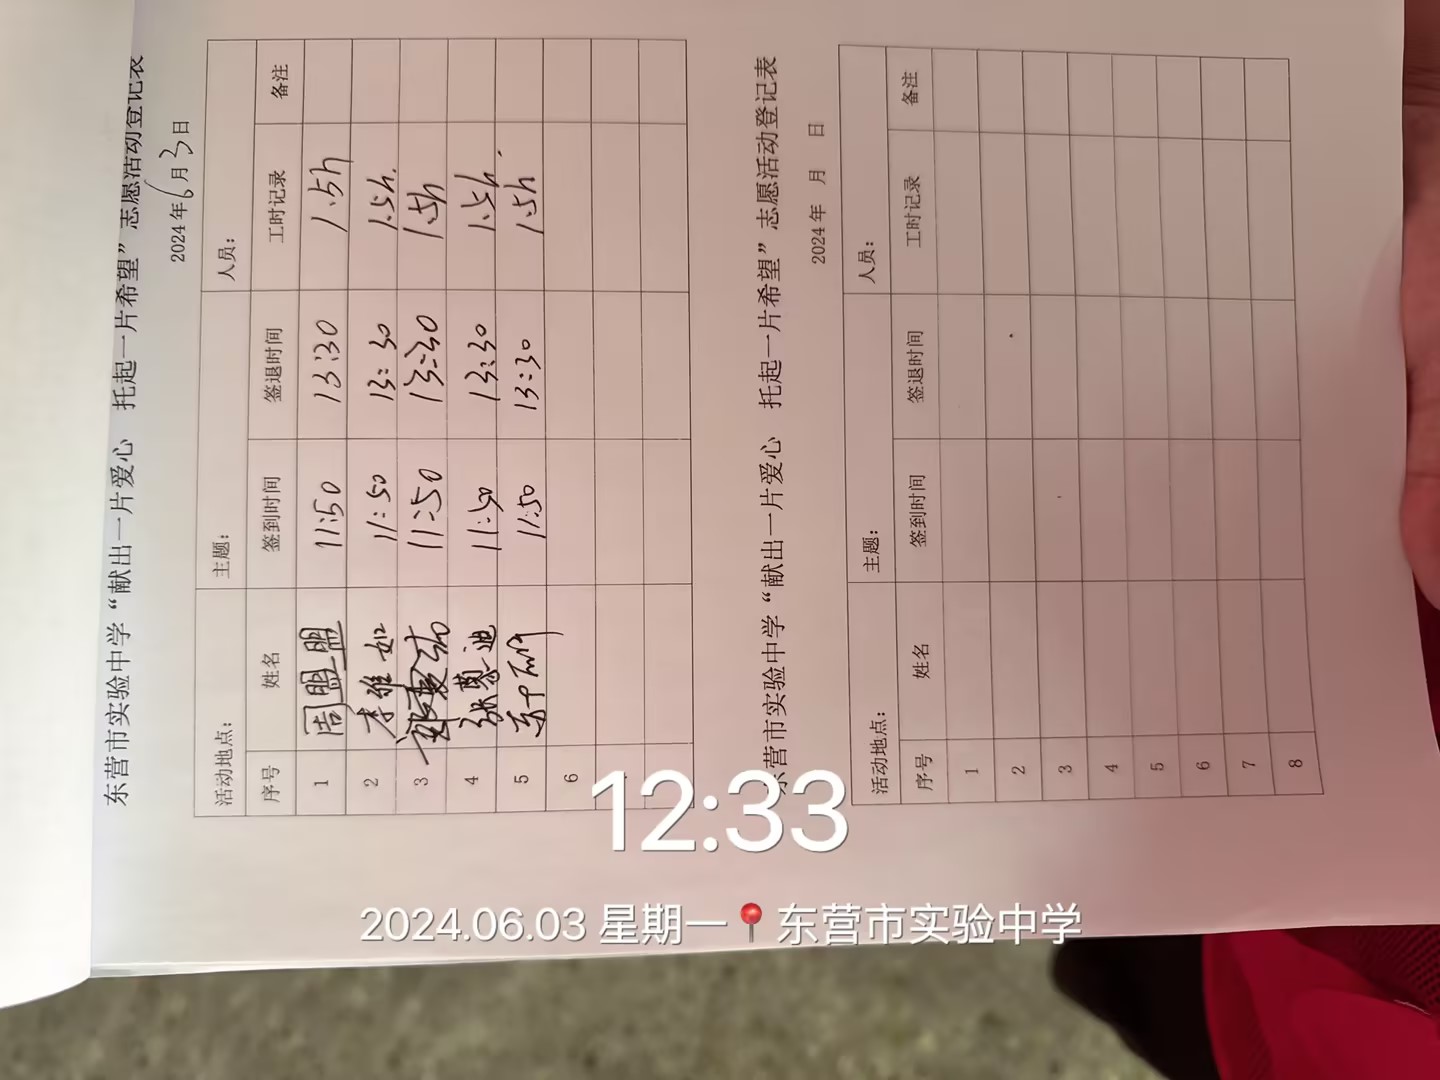 东营市实验中学“献出一片爱心 托起一片希望”志愿活动登记表
2024年6月3日
活动地点： 主题： 人员：
序号 姓名 签到时间 签退时间 工时记录 备注
1 周盟盟 11:50 13:30 1.5h
2 李雅如 11:50 13:30 1.5h.
3 11:50 13:30 1.5h
4 张慕迪 11:50 13:30 1.5h.
5 11:50 13:30 1.5h
6
东营市实验中学“献出一片爱心 托起一片希望”志愿活动登记表
2024年 月 日
活动地点： 主题： 人员：
序号 姓名 签到时间 签退时间 工时记录 备注
1
2
3
4
5
6
7
8
12:33
2024.06.03 星期一 东营市实验中学